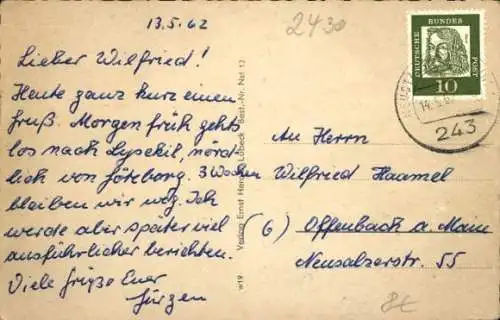 13.5.62
2430
Lieber Wilfried!
Heute ganz kurz einen
Gruß. Morgen früh gehts
los nach Lysekil, nörd-
lich von Göteborg. 3 Wochen
bleiben wir weg. Ich
werde aber später viel
ausführlicher berichten.
Viele Grüße Euer
Jürgen
W19 Verlag Ernst Lübeck Best.-Nr. Nst 12
DEUTSCHE BUNDES POST
10
14.5.6
243
An Herrn
Wilfried Haamel
(6) Offenbach a. Main
Neusalzerstr. 55
8€